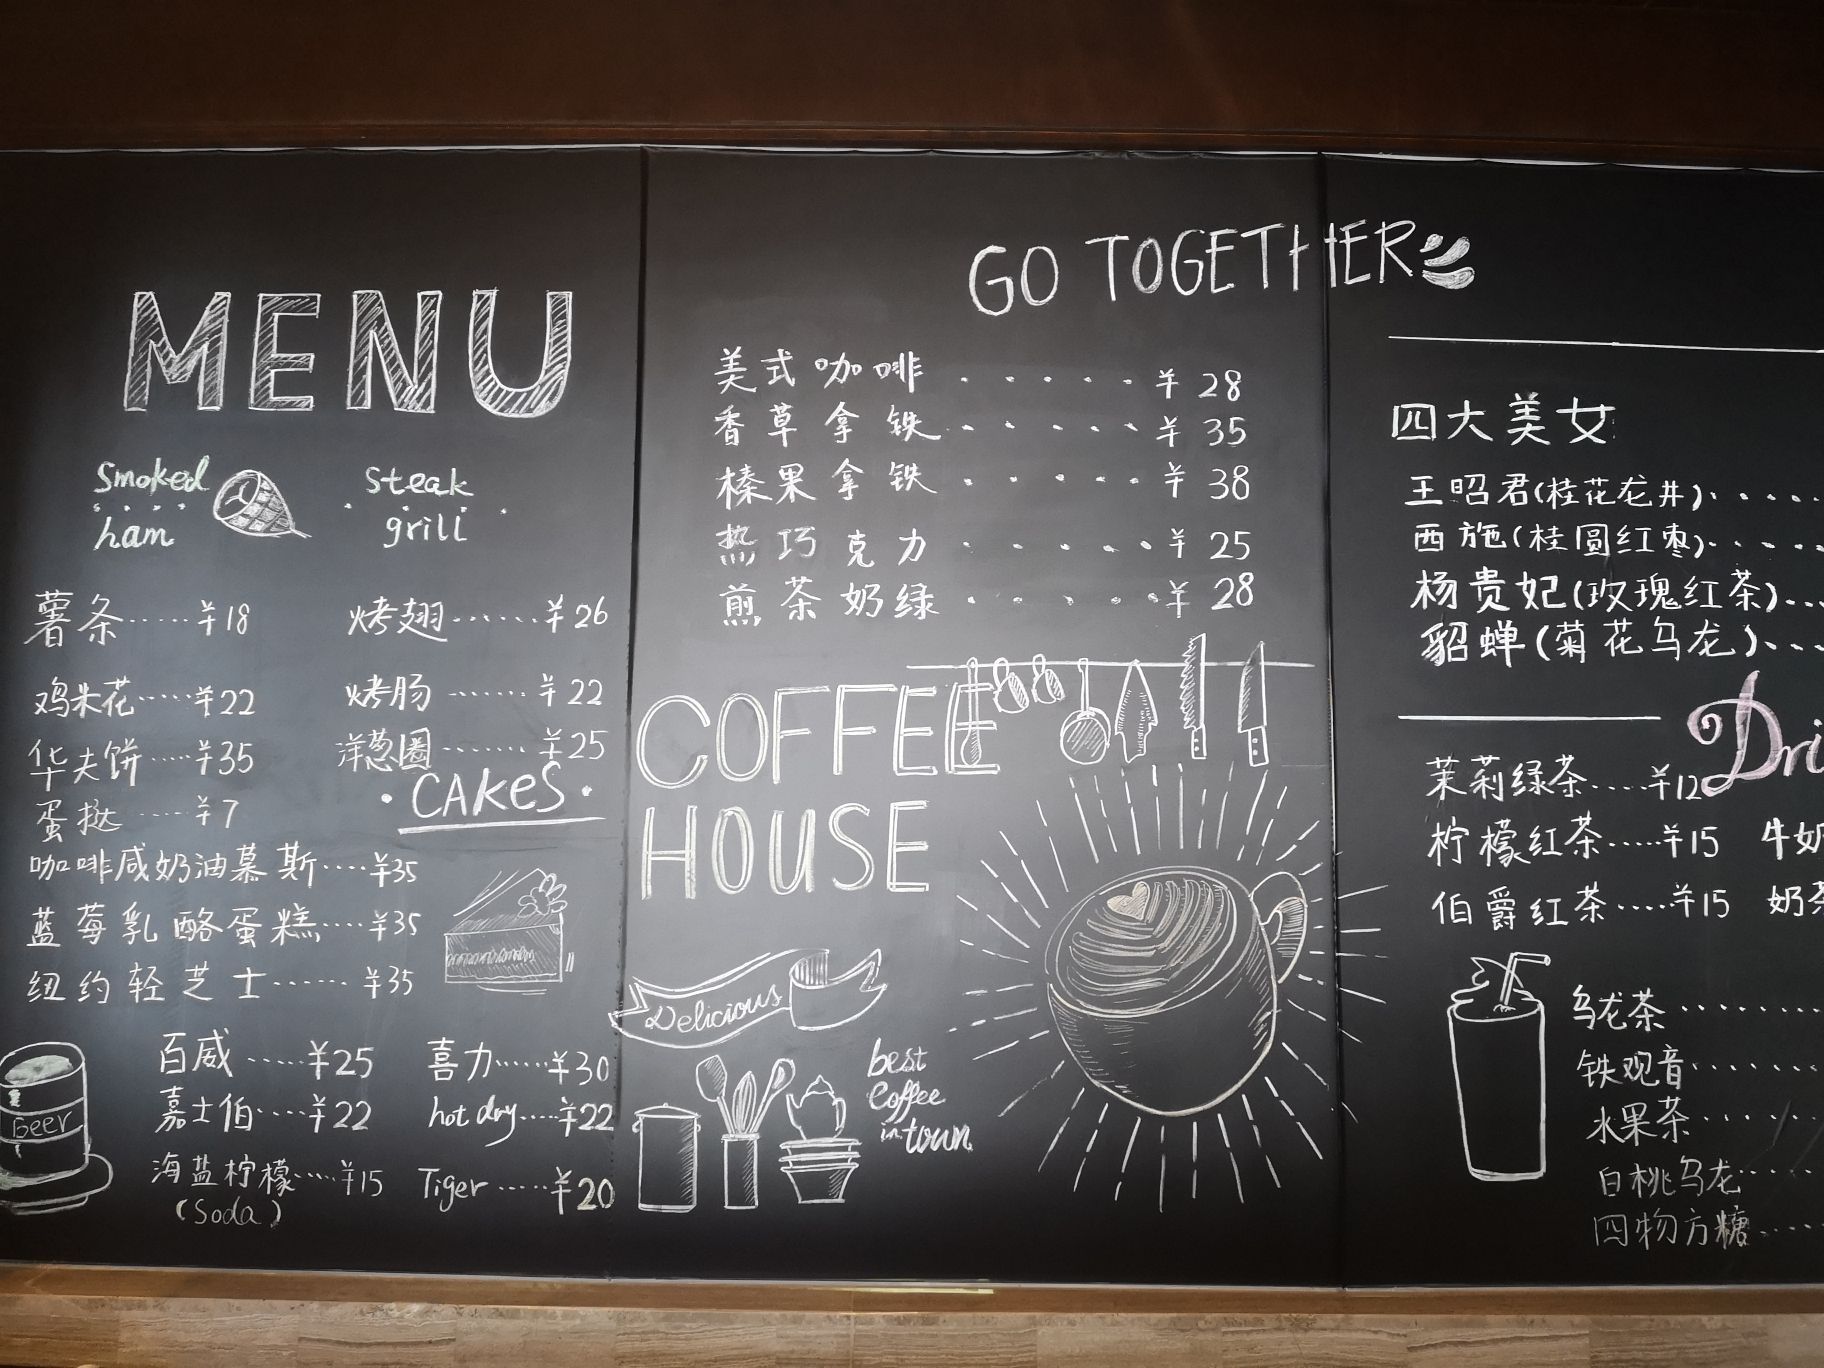 MENU
Smoked ham
steak grill
薯条······¥18
烤翅······¥26
鸡米花·····¥22
烤肠·······¥22
华夫饼·····¥35
洋葱圈·······¥25
蛋挞·····¥7
·CAKeS·
咖啡咸奶油慕斯····¥35
蓝莓乳酪蛋糕····¥35
纽约轻芝士······¥35
Beer
百威······¥25
喜力······¥30
嘉士伯····¥22
hot dry·····¥22
海盐柠檬····¥15
(Soda)
Tiger·····¥20
GO TOGETHER
美式咖啡······¥28
香草拿铁·······¥35
榛果拿铁······¥38
热巧克力······¥25
煎茶奶绿······¥28
COFFEE
HOUSE
Delicious
best
Coffee
in town
四大美女
王昭君(桂花龙井)····
西施(桂圆红枣)····
杨贵妃(玫瑰红茶)···
貂蝉(菊花乌龙)····
Dri
茉莉绿茶····¥12
柠檬红茶·····¥15 牛奶
伯爵红茶·····¥15 奶茶
乌龙茶········
铁观音·······
水果茶·······
白桃乌龙·····
四物方糖····